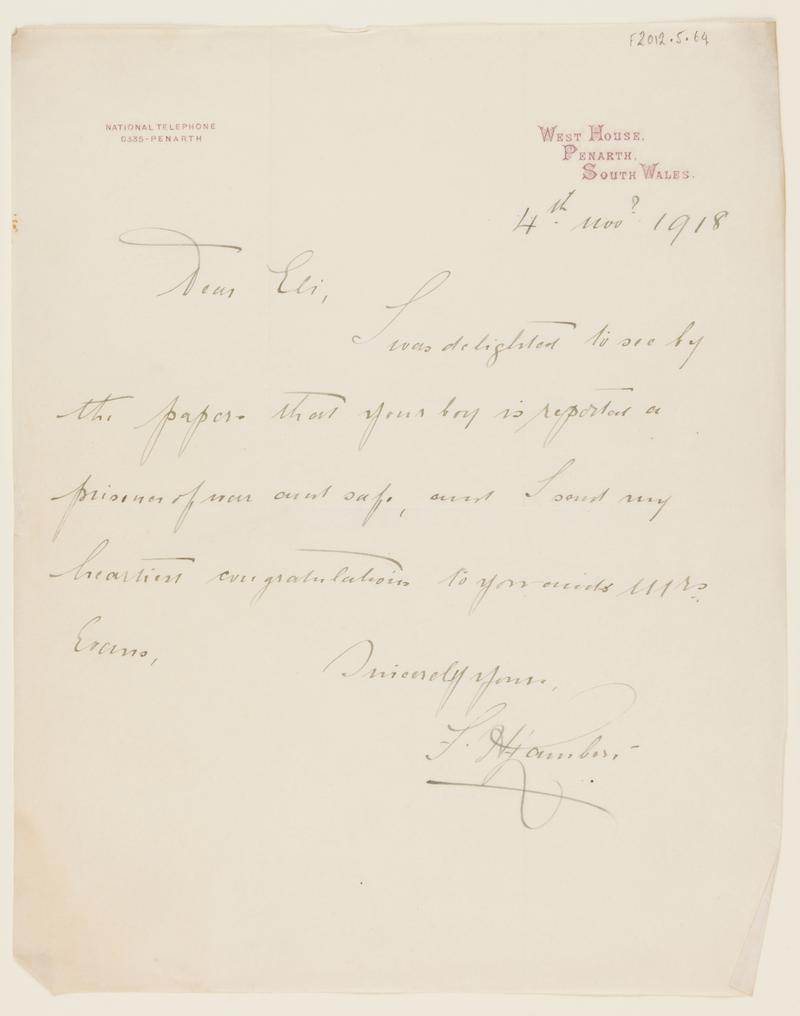 F2012.5.64
NATIONAL TELEPHONE
0335-PENARTH
WEST HOUSE,
PENARTH,
SOUTH WALES.
4th Novr 1918
Dear Eli,
I was delighted to see by
the papers that your boy is reported a
prisoner of war and safe, and I send my
heartiest congratulations to you and Mrs
Evans,
Sincerely yours,